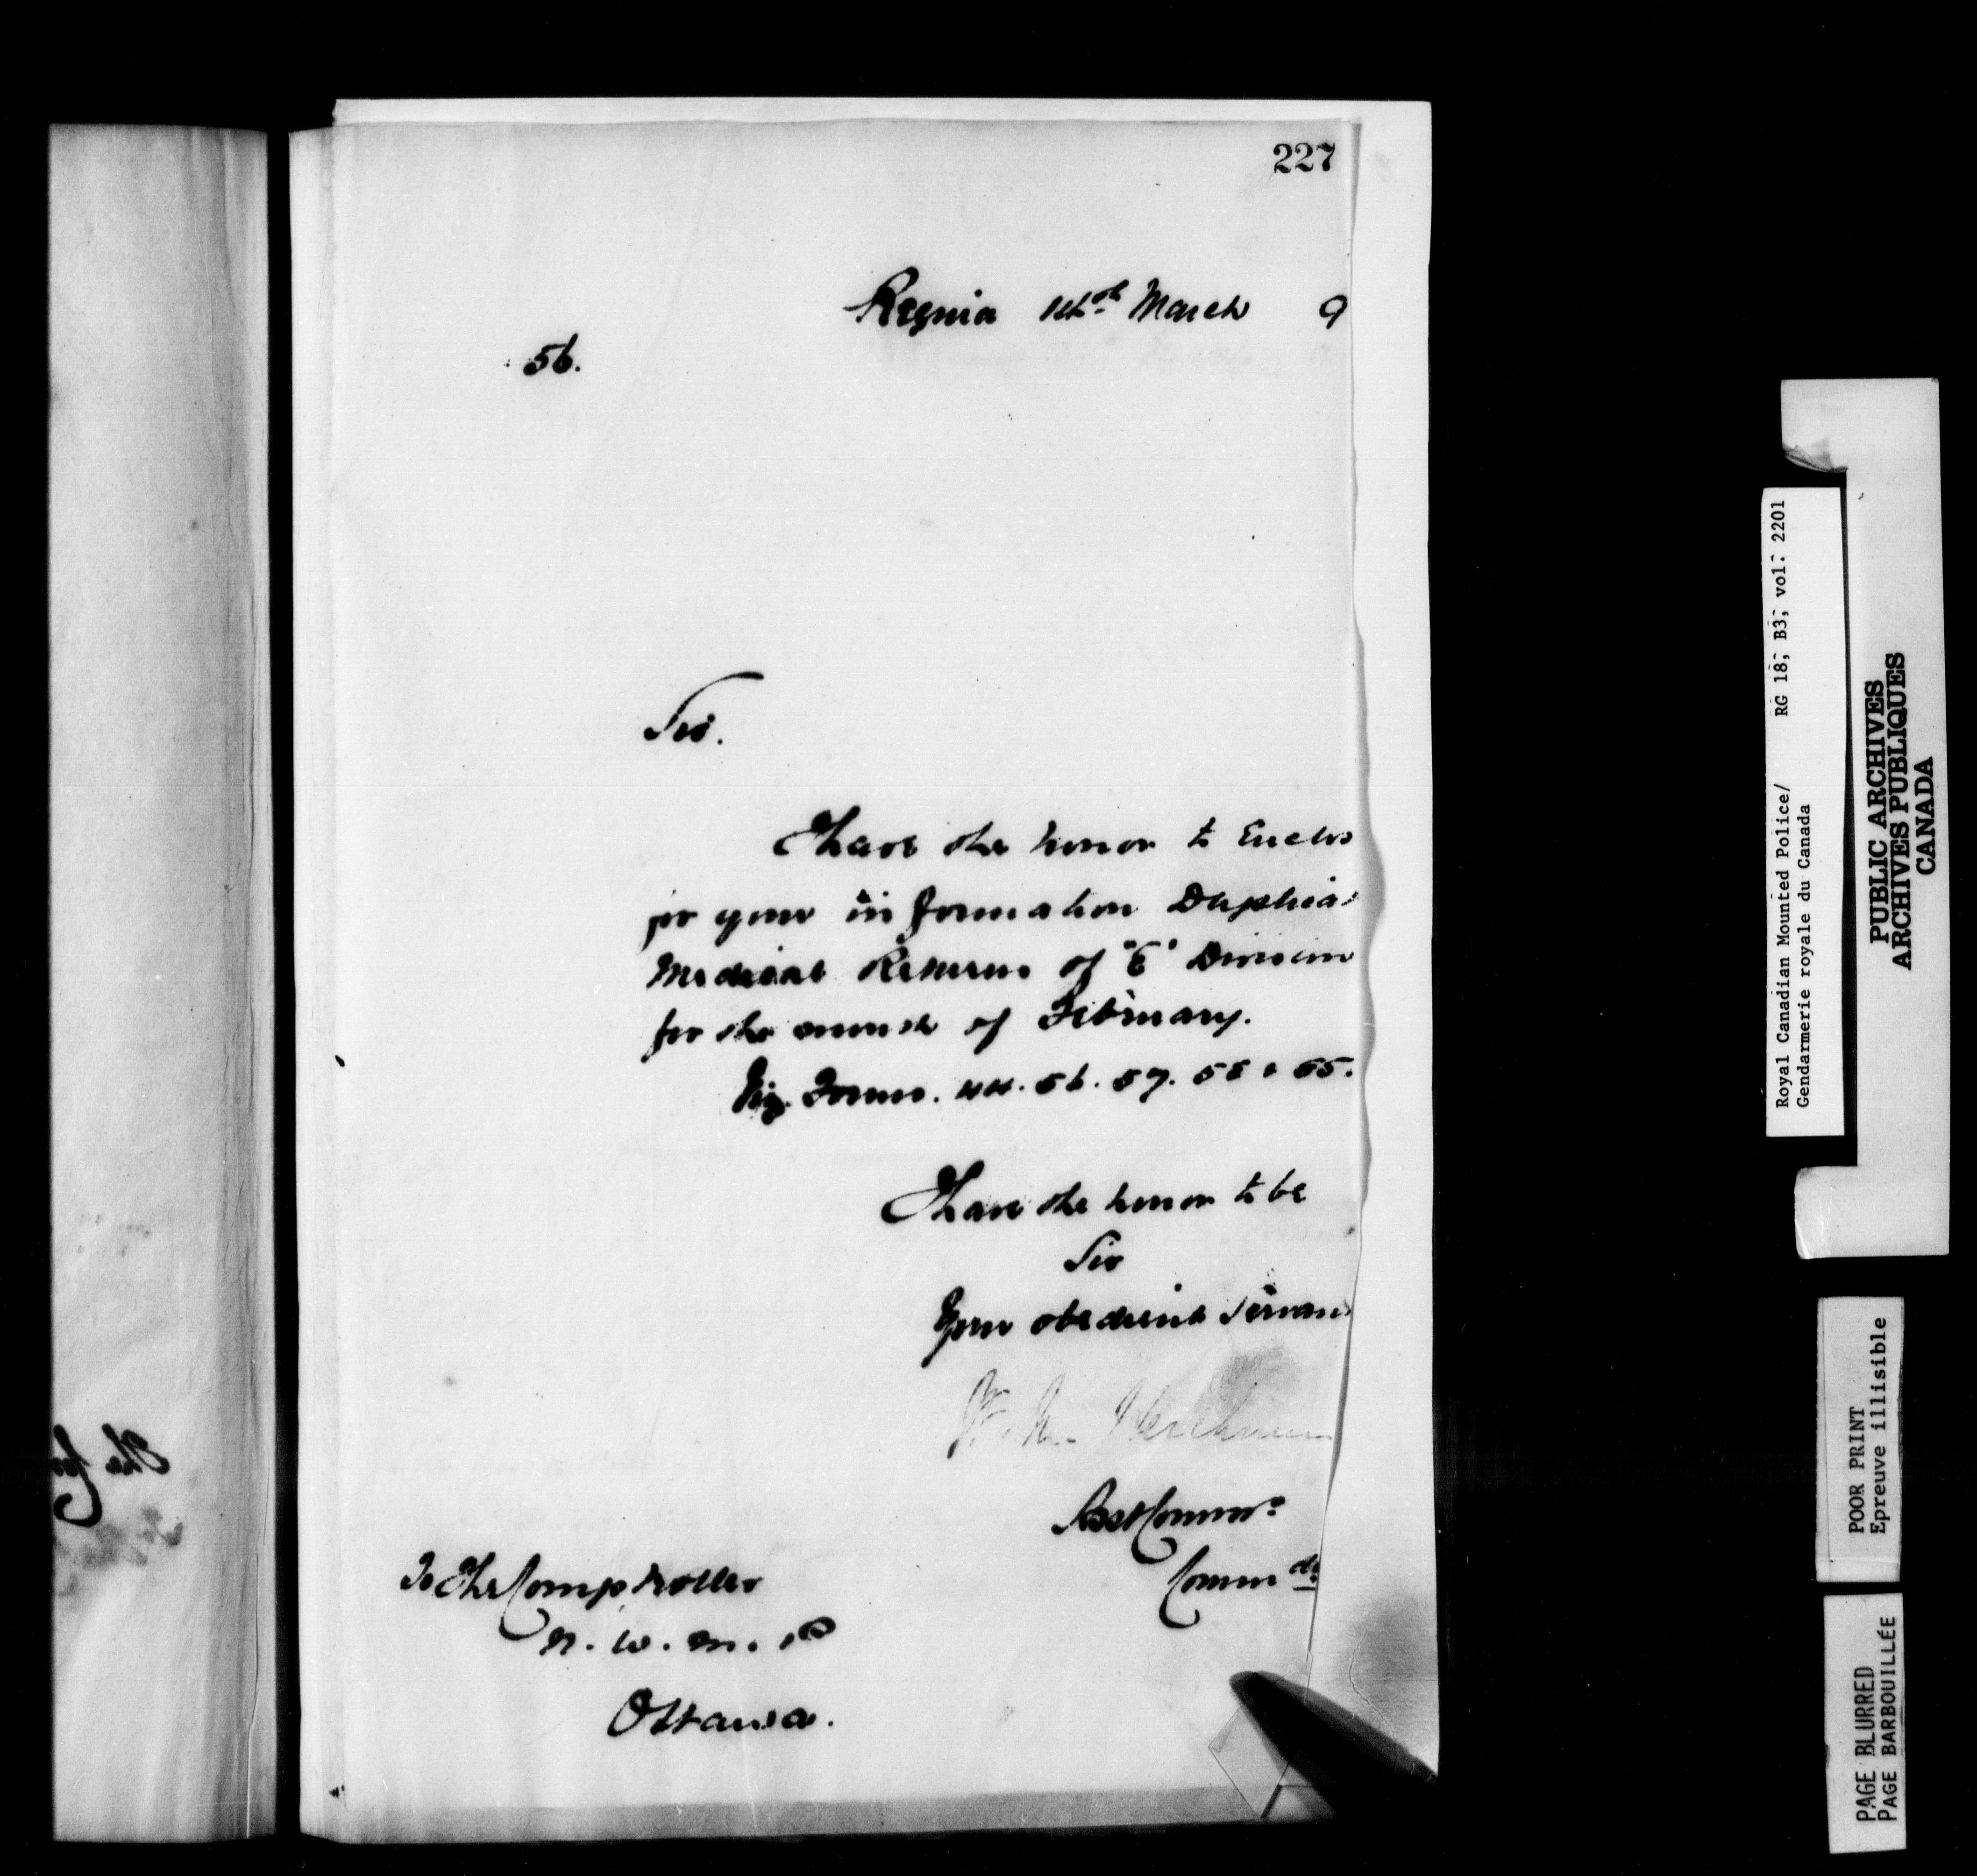 227
Regina 14th March 9
56.
Sir.
I have the honor to Enclo
for your information Duplica
Medical Returns of "E" Division
for the month of February.
Viz. Forms. 44. 56. 57. 58 & 65.
I have the honor to be
Sir
Your obedient Servan
Herchmer
Asst Commr.
Commdg
To The Comptroller
N. W. M. P
Ottawa.
Royal Canadian Mounted Police/ RG 18, B3, vol. 2201
Gendarmerie royale du Canada
PUBLIC ARCHIVES
ARCHIVES PUBLIQUES
CANADA
POOR PRINT
Epreuve illisible
PAGE BLURRED
PAGE BARBOUILLÉE